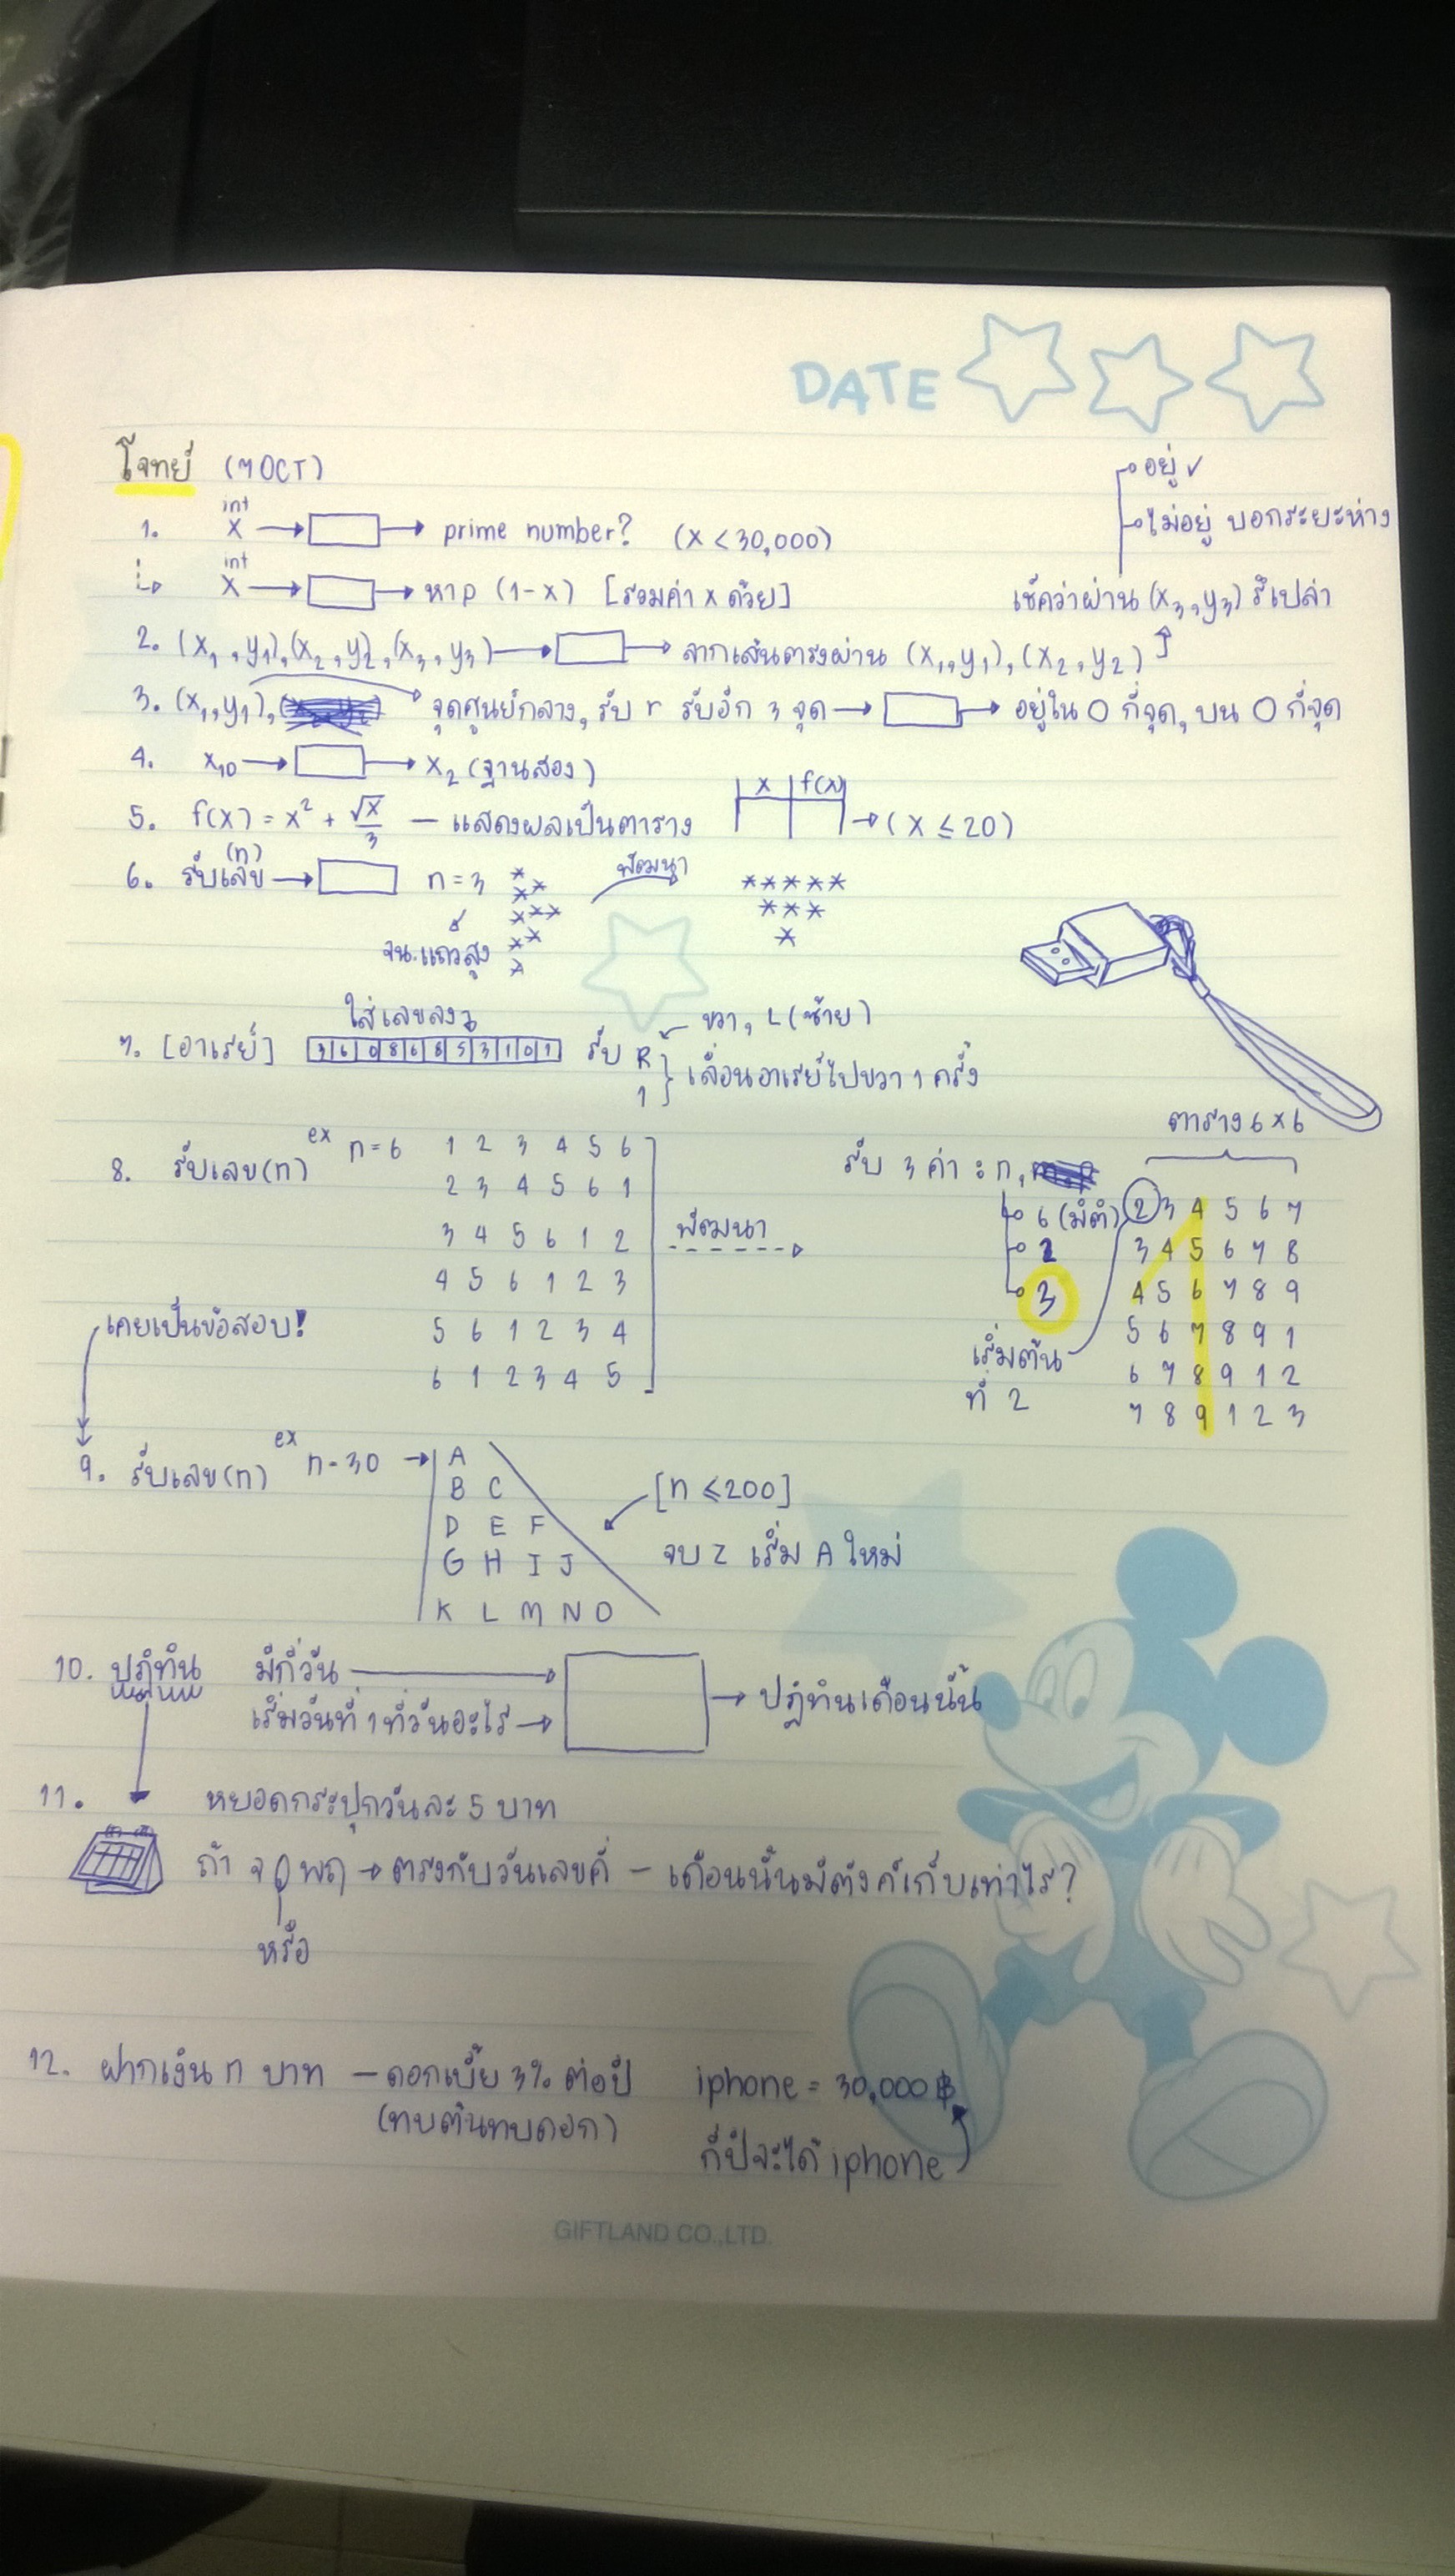 DATE
โจทย์ (7 OCT)
อยู่ ✓
ไม่อยู่ บอกระยะห่าง
int
1. X → prime number? (X < 30,000)
int
X → หา p (1-X) [รวมค่า x ด้วย]
เช็คว่าผ่าน (x₃,y₃) รึเปล่า
2. (x₁,y₁),(x₂,y₂),(x₃,y₃) → ลากเส้นตรงผ่าน (x₁,y₁),(x₂,y₂)
3. (x₁,y₁), จุดศูนย์กลาง, รับ r รับอีก 3 จุด → อยู่ใน O กี่จุด, บน O กี่จุด
4. X₁₀ → X₂ (ฐานสอง)
5. f(x) = x² + √x/3 – แสดงผลเป็นตาราง x f(x) → (X ≤ 20)
(n)
6. รับเลข → n = 3 พัฒนา
*
**
***
**
*
*****
***
*
จน.แถวสูง
ใส่เลขลง
ขวา, L (ซ้าย)
7. [อาเรย์] 3 6 0 8 6 8 5 3 1 0 1 รับ R
1
เลื่อนอาเรย์ไปขวา 1 ครั้ง
8. รับเลข (n) ex n=6
1 2 3 4 5 6
2 3 4 5 6 1
3 4 5 6 1 2
4 5 6 1 2 3
5 6 1 2 3 4
6 1 2 3 4 5
พัฒนา
ตาราง 6 x 6
รับ 3 ค่า : n,
6 (มิติ)
2
3
เริ่มต้น
ที่ 2
2 3 4 5 6 7
3 4 5 6 7 8
4 5 6 7 8 9
5 6 7 8 9 1
6 7 8 9 1 2
7 8 9 1 2 3
เคยเป็นข้อสอบ!
9. รับเลข (n) ex n=30 →
A
B C
D E F
G H I J
K L M N O
[n ≤ 200]
จบ Z เริ่ม A ใหม่
10. ปฏิทิน มีกี่วัน →
เริ่มวันที่ 1 ที่วันอะไร →
→ ปฏิทินเดือนนั้น
11. หยอดกระปุกวันละ 5 บาท
ถ้า จ พฤ → ตรงกับวันเลขคี่ – เดือนนั้นมีตังค์เก็บเท่าไร?
หรือ
12. ฝากเงิน n บาท – ดอกเบี้ย 3% ต่อปี iphone = 30,000 ฿
(ทบต้นทบดอก)
กี่ปีจะได้ iphone
GIFTLAND CO.,LTD.